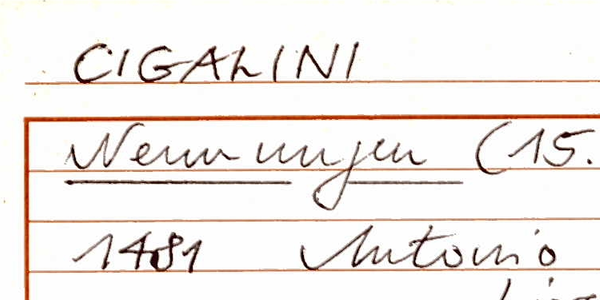 CIGALINI
Nennungen (15.
1481 Antonio